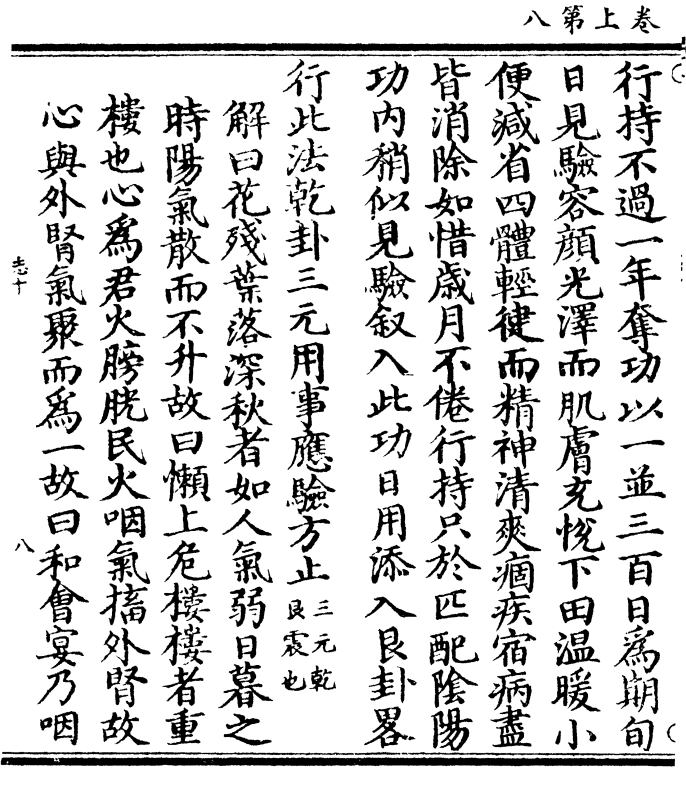 卷上第八
行持不過一年奪功以一並三百日爲期旬
日見驗容顔光澤而肌膚充悅下田温暖小
便減省四體輕健而精神清爽痼疾宿病盡
皆消除如惜歲月不倦行持只於匹配陰陽
功内稍似見驗叙入此功日用添入艮卦畧
行此法乾卦三元用事應驗方止三元乾
艮震也
解曰花殘葉落深秋者如人氣弱日暮之
時陽氣散而不升故曰懶上危樓樓者重
樓也心爲君火膀胱民火咽氣搐外腎故
心與外腎氣聚而爲一故曰和會宴乃咽
志十
八